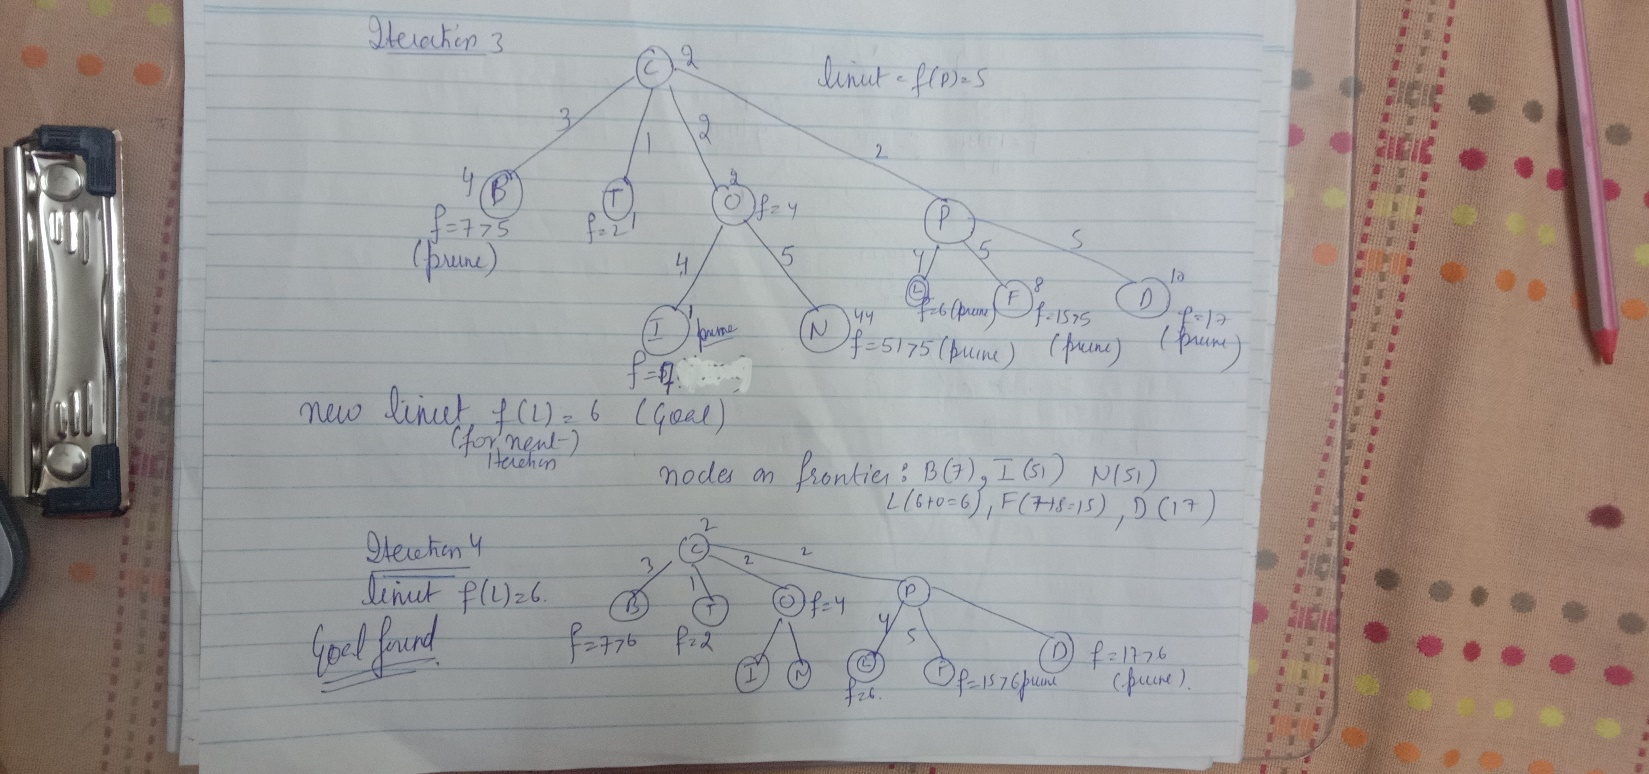 Iteration 3
C 2
limit = f(P)=5
3 1 2 2
4 B
f=7>5
(prune)
T 1
f=2
2
O f=4
P
4 5
4 5 5
I 1 prune
f=7
N 44
f=51>5 (prune)
L
f=6 (prune)
F 8
f=15>5
(prune)
D 10
f=17
(prune)
new limit f(L)=6 (Goal)
(for next)
Iteration
nodes on frontier: B(7), I(51) N(51)
L(6+0=6), F(7+8=15), D(17)
Iteration 4
limit f(L)=6.
Goal found
2
C
3 1 2 2
B
f=7>6
T
f=2
O f=4
P
I N
4 5
L
f=6.
F f=15>6 prune
D f=17>6
(prune).